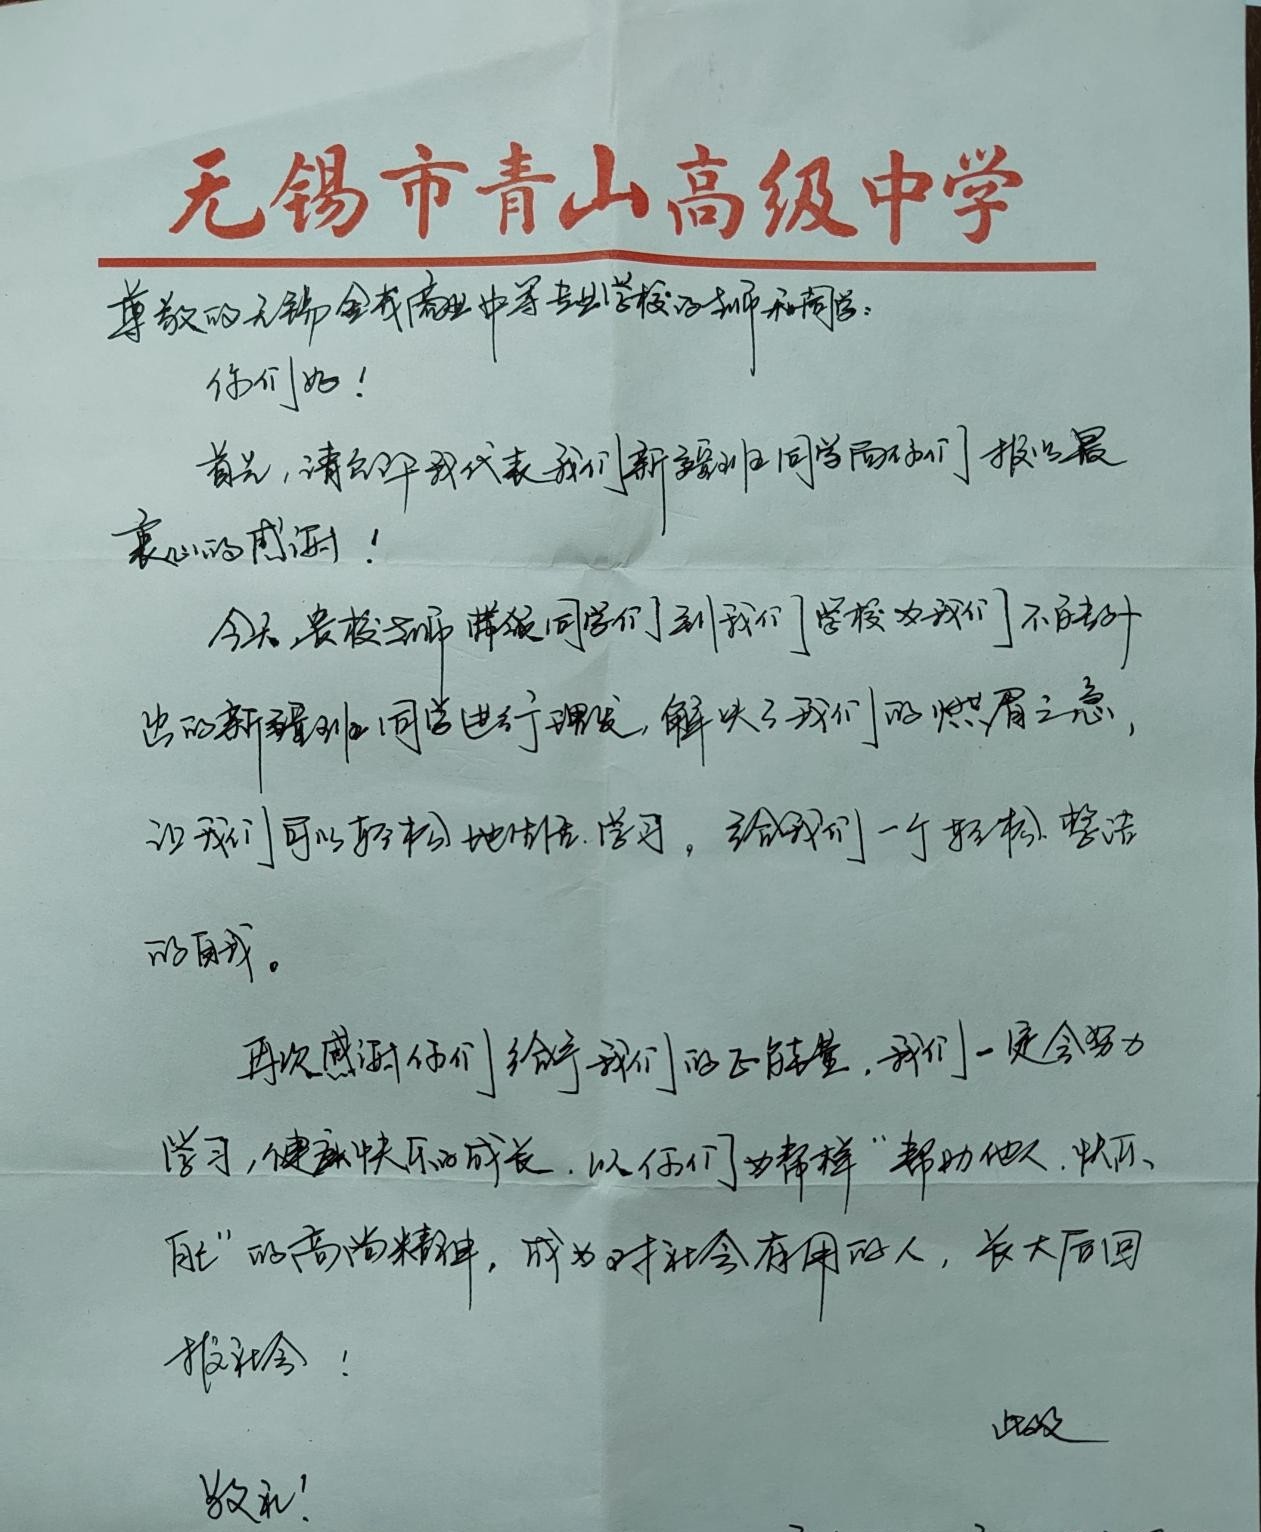 无锡市青山高级中学
尊敬的无锡金茂商业中等专业学校的老师和同学：
你们好！
首先，请允许我代表我们新疆班同学向你们报以最
衷心的感谢！
今天，贵校老师带领同学们到我们学校为我们不能外
出的新疆班同学进行理发，解决了我们的燃眉之急，
让我们可以轻松地生活.学习，给我们一个轻松.整洁
的自我。
再次感谢你们给予我们的正能量，我们一定会努力
学习，健康快乐的成长，以你们为帮样“帮助他人.快乐
自己”的高尚精神，成为对社会有用的人，长大后回
报社会！
此致
敬礼！